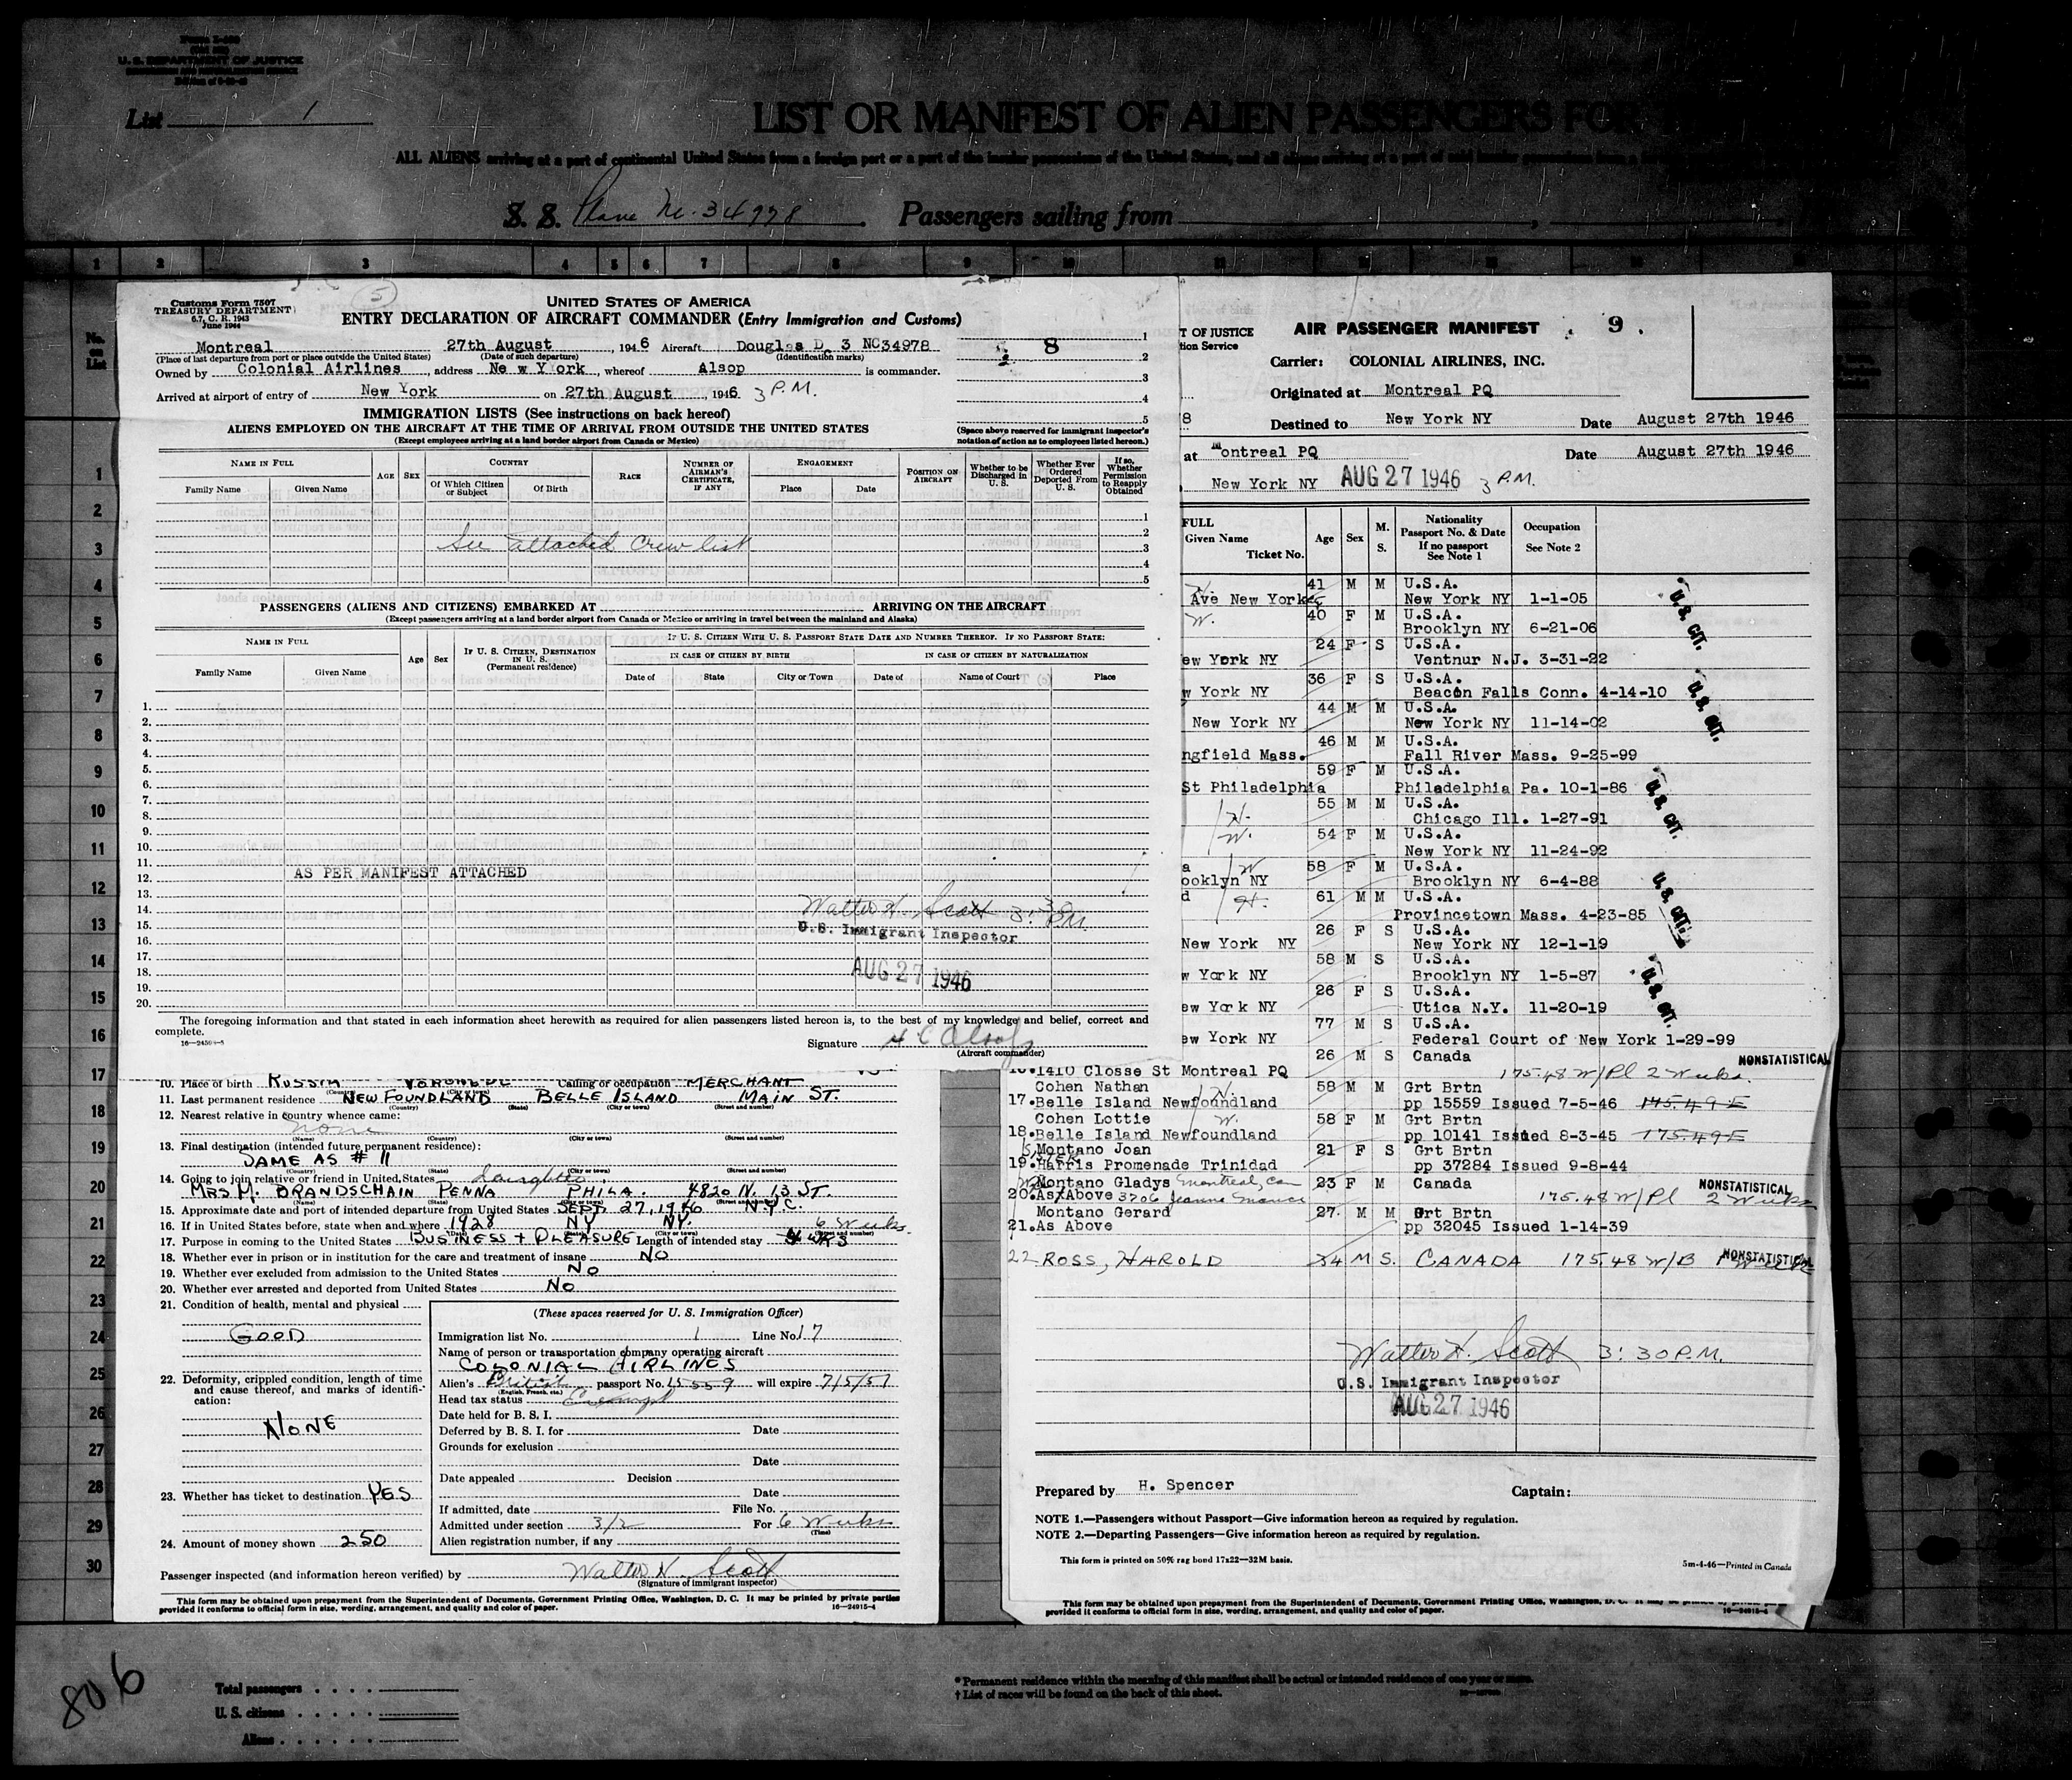 U. S. DEPARTMENT OF JUSTICE
List 1
LIST OR MANIFEST OF ALIEN PASSENGERS FOR
ALL ALIENS arriving at a port of continental United States from a foreign port or a port of the insular possessions of the United States, and all aliens arriving at a port of said insular possessions from a
S. S. Plane No. 34978. Passengers sailing from
1 2 3 4 5 6 7 8 9 10
No. on List
Customs Form 7507
TREASURY DEPARTMENT
6.7, C. R. 1943
June 1944
5
UNITED STATES OF AMERICA
ENTRY DECLARATION OF AIRCRAFT COMMANDER (Entry Immigration and Customs)
Montreal 27th August, 1946 Aircraft Douglas D 3 NC34978
(Place of last departure from port or place outside the United States) (Date of such departure) (Identification marks)
Owned by Colonial Airlines, address New York, whereof Alsop is commander.
Arrived at airport of entry of New York on 27th August, 1946 3 P.M.
8
1
2
3
4
5
(Space above reserved for immigrant inspector's notation of action as to employees listed hereon.)
IMMIGRATION LISTS (See instructions on back hereof)
ALIENS EMPLOYED ON THE AIRCRAFT AT THE TIME OF ARRIVAL FROM OUTSIDE THE UNITED STATES
(Except employees arriving at a land border airport from Canada or Mexico)
NAME IN FULL AGE SEX COUNTRY RACE NUMBER OF AIRMAN'S CERTIFICATE, IF ANY ENGAGEMENT POSITION ON AIRCRAFT Whether to be Discharged in U. S. Whether Ever Ordered Deported From U. S. If so, Whether Permission to Reapply Obtained
Family Name Given Name Of Which Citizen or Subject Of Birth Place Date
See attached Crew list
1
2
3
4
5
PASSENGERS (ALIENS AND CITIZENS) EMBARKED AT ARRIVING ON THE AIRCRAFT
(Except passengers arriving at a land border airport from Canada or Mexico or arriving in travel between the mainland and Alaska)
NAME IN FULL Age Sex IF U. S. CITIZEN, DESTINATION IN U. S. (Permanent residence) IF U. S. CITIZEN WITH U. S. PASSPORT STATE DATE AND NUMBER THEREOF. IF NO PASSPORT STATE:
IN CASE OF CITIZEN BY BIRTH IN CASE OF CITIZEN BY NATURALIZATION
Family Name Given Name Date of State City or Town Date of Name of Court Place
1.
2.
3.
4.
5.
6.
7.
8.
9.
10.
11.
12. AS PER MANIFEST ATTACHED
13.
14. Walter H. Scott 3:30 P.M.
15. U.S. Immigrant Inspector
16.
17.
18. AUG 27 1946
19.
20.
The foregoing information and that stated in each information sheet herewith as required for alien passengers listed hereon is, to the best of my knowledge and belief, correct and complete.
16—24598-5
Signature H C Alsop
(Aircraft commander)
10. Place of birth RUSSIA Calling or occupation MERCHANT
11. Last permanent residence NEW FOUNDLAND BELLE ISLAND MAIN ST.
(Country) (State) (City or town) (Street and number)
12. Nearest relative in country whence came:
none
(Name) (Country) (City or town) (Street and number)
13. Final destination (intended future permanent residence):
SAME AS # 11
(Country) (State) (City or town) (Street and number)
14. Going to join relative or friend in United States Daughter
MRS M. BRANDSCHAIN PENNA PHILA. 4820 N. 13 ST.
(State) (City or town) (Street and number)
15. Approximate date and port of intended departure from United States SEPT. 27, 1946 N.Y.C.
16. If in United States before, state when and where 1928 NY NY.
6 Weeks
17. Purpose in coming to the United States BUSINESS + PLEASURE Length of intended stay WKS
18. Whether ever in prison or in institution for the care and treatment of insane NO
19. Whether ever excluded from admission to the United States NO
20. Whether ever arrested and deported from United States NO
21. Condition of health, mental and physical
GOOD
22. Deformity, crippled condition, length of time and cause thereof, and marks of identification:
NONE
23. Whether has ticket to destination YES
24. Amount of money shown 250
(These spaces reserved for U. S. Immigration Officer)
Immigration list No. 1 Line No. 17
Name of person or transportation company operating aircraft
COLONIAL AIRLINES
Alien's British passport No. 15559 will expire 7/5/51
(English, French, etc.)
Head tax status Exempt
Date held for B. S. I.
Deferred by B. S. I. for Date
Grounds for exclusion
Date
Date appealed Decision
Date
If admitted, date File No.
Admitted under section 3/2 For 6 Weeks
(Time)
Alien registration number, if any
Passenger inspected (and information hereon verified) by Walter H. Scott
(Signature of immigrant inspector)
This form may be obtained upon prepayment from the Superintendent of Documents, Government Printing Office, Washington, D. C. It may be printed by private parties
provided it conforms to official form in size, wording, arrangement, and quality and color of paper. 16—24915-4
T OF JUSTICE
tion Service
AIR PASSENGER MANIFEST 9
Carrier: COLONIAL AIRLINES, INC.
Originated at Montreal PQ
8 Destined to New York NY Date August 27th 1946
at Montreal PQ Date August 27th 1946
New York NY AUG 27 1946 3 P.M.
FULL
Given Name Ticket No. Age Sex M. S. Nationality Passport No. & Date If no passport See Note 1 Occupation See Note 2
41 M M U.S.A.
Ave New York New York NY 1-1-05
W. 40 F M U.S.A.
Brooklyn NY 6-21-06
24 F S U.S.A.
ew York NY Ventnur N.J. 3-31-22
36 F S U.S.A.
w York NY Beacon Falls Conn. 4-14-10
44 M M U.S.A.
New York NY New York NY 11-14-02
46 M M U.S.A.
ngfield Mass. Fall River Mass. 9-25-99
59 F M U.S.A.
St Philadelphia Philadelphia Pa. 10-1-86
55 M M U.S.A.
H. Chicago Ill. 1-27-91
W. 54 F M U.S.A.
New York NY 11-24-92
a W 58 F M U.S.A.
ooklyn NY Brooklyn NY 6-4-88
d H. 61 M M U.S.A.
Provincetown Mass. 4-23-85
26 F S U.S.A.
New York NY New York NY 12-1-19
58 M S U.S.A.
w York NY Brooklyn NY 1-5-87
26 F S U.S.A.
ew York NY Utica N.Y. 11-20-19
77 M S U.S.A.
ew York NY Federal Court of New York 1-29-99
U.S. CIT.
U.S. CIT.
U.S. CIT.
U.S. CIT.
U.S. CIT.
26 M S Canada NONSTATISTICAL
16. 1410 Closse St Montreal PQ 175.48 W/Pl 2 Weeks.
Cohen Nathan H. 58 M M Grt Brtn
17. Belle Island Newfoundland pp 15559 Issued 7-5-46 175.49 E
Cohen Lottie W. 58 F M Grt Brtn
18. Belle Island Newfoundland pp 10141 Issued 8-3-45 175.49E
Montano Joan 21 F S Grt Brtn
19. Harris Promenade Trinidad pp 37284 Issued 9-8-44
Montano Gladys Montreal, Can 23 F M Canada NONSTATISTICAL
20. As Above 3706 Jeanne Mance 175.48 W/Pl 2 Weeks
Montano Gerard 27 M M Grt Brtn
21. As Above pp 32045 Issued 1-14-39
22 ROSS, HAROLD 34 M S. CANADA 175.48 W/B NONSTATISTICAL
Walter H. Scott 3:30 P.M.
U.S. Immigrant Inspector
AUG 27 1946
Prepared by H. Spencer Captain:
NOTE 1.—Passengers without Passport—Give information hereon as required by regulation.
NOTE 2.—Departing Passengers—Give information hereon as required by regulation.
This form is printed on 50% rag bond 17x22—32M basis. 5m-4-46—Printed in Canada
This form may be obtained upon prepayment from the Superintendent of Documents, Government Printing Office, Washington, D. C.
provided it conforms to official form in size, wording, arrangement, and quality and color of paper. 16—24915-4
1
2
3
4
5
6
7
8
9
10
11
12
13
14
15
16
17
18
19
20
21
22
23
24
25
26
27
28
29
30
806
Total passengers
U. S. citizens
Aliens
* Permanent residence within the meaning of this manifest shall be actual or intended residence of one year or more.
† List of races will be found on the back of this sheet.